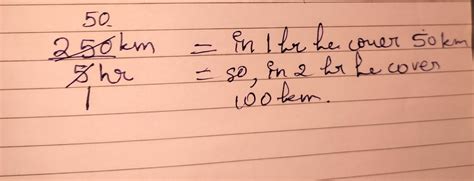 50
250 km = in 1 hr he cover 50 km
5 hr = so, in 2 hr he cover
1 100 km.